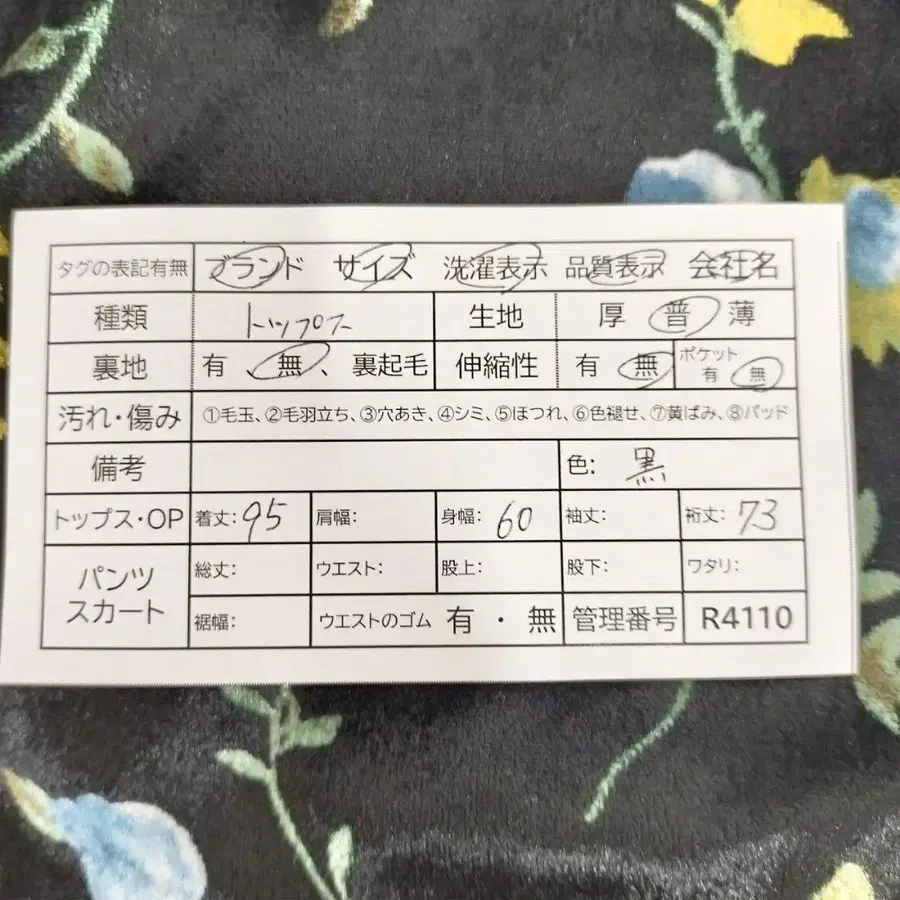 タグの表記有無 ブランド サイズ 洗濯表示 品質表示 会社名
種類 トップス 生地 厚 普 薄
裏地 有 、 無 、 裏起毛 伸縮性 有 無 ポケット 有 無
汚れ・傷み ①毛玉、②毛羽立ち、③穴あき、④シミ、⑤ほつれ、⑥色褪せ、⑦黄ばみ、⑧パッド
備考 色: 黒
トップス・OP 着丈: 95 肩幅: 身幅: 60 袖丈: 裄丈: 73
パンツ スカート 総丈: ウエスト: 股上: 股下: ワタリ:
裾幅: ウエストのゴム 有 ・ 無 管理番号 R4110